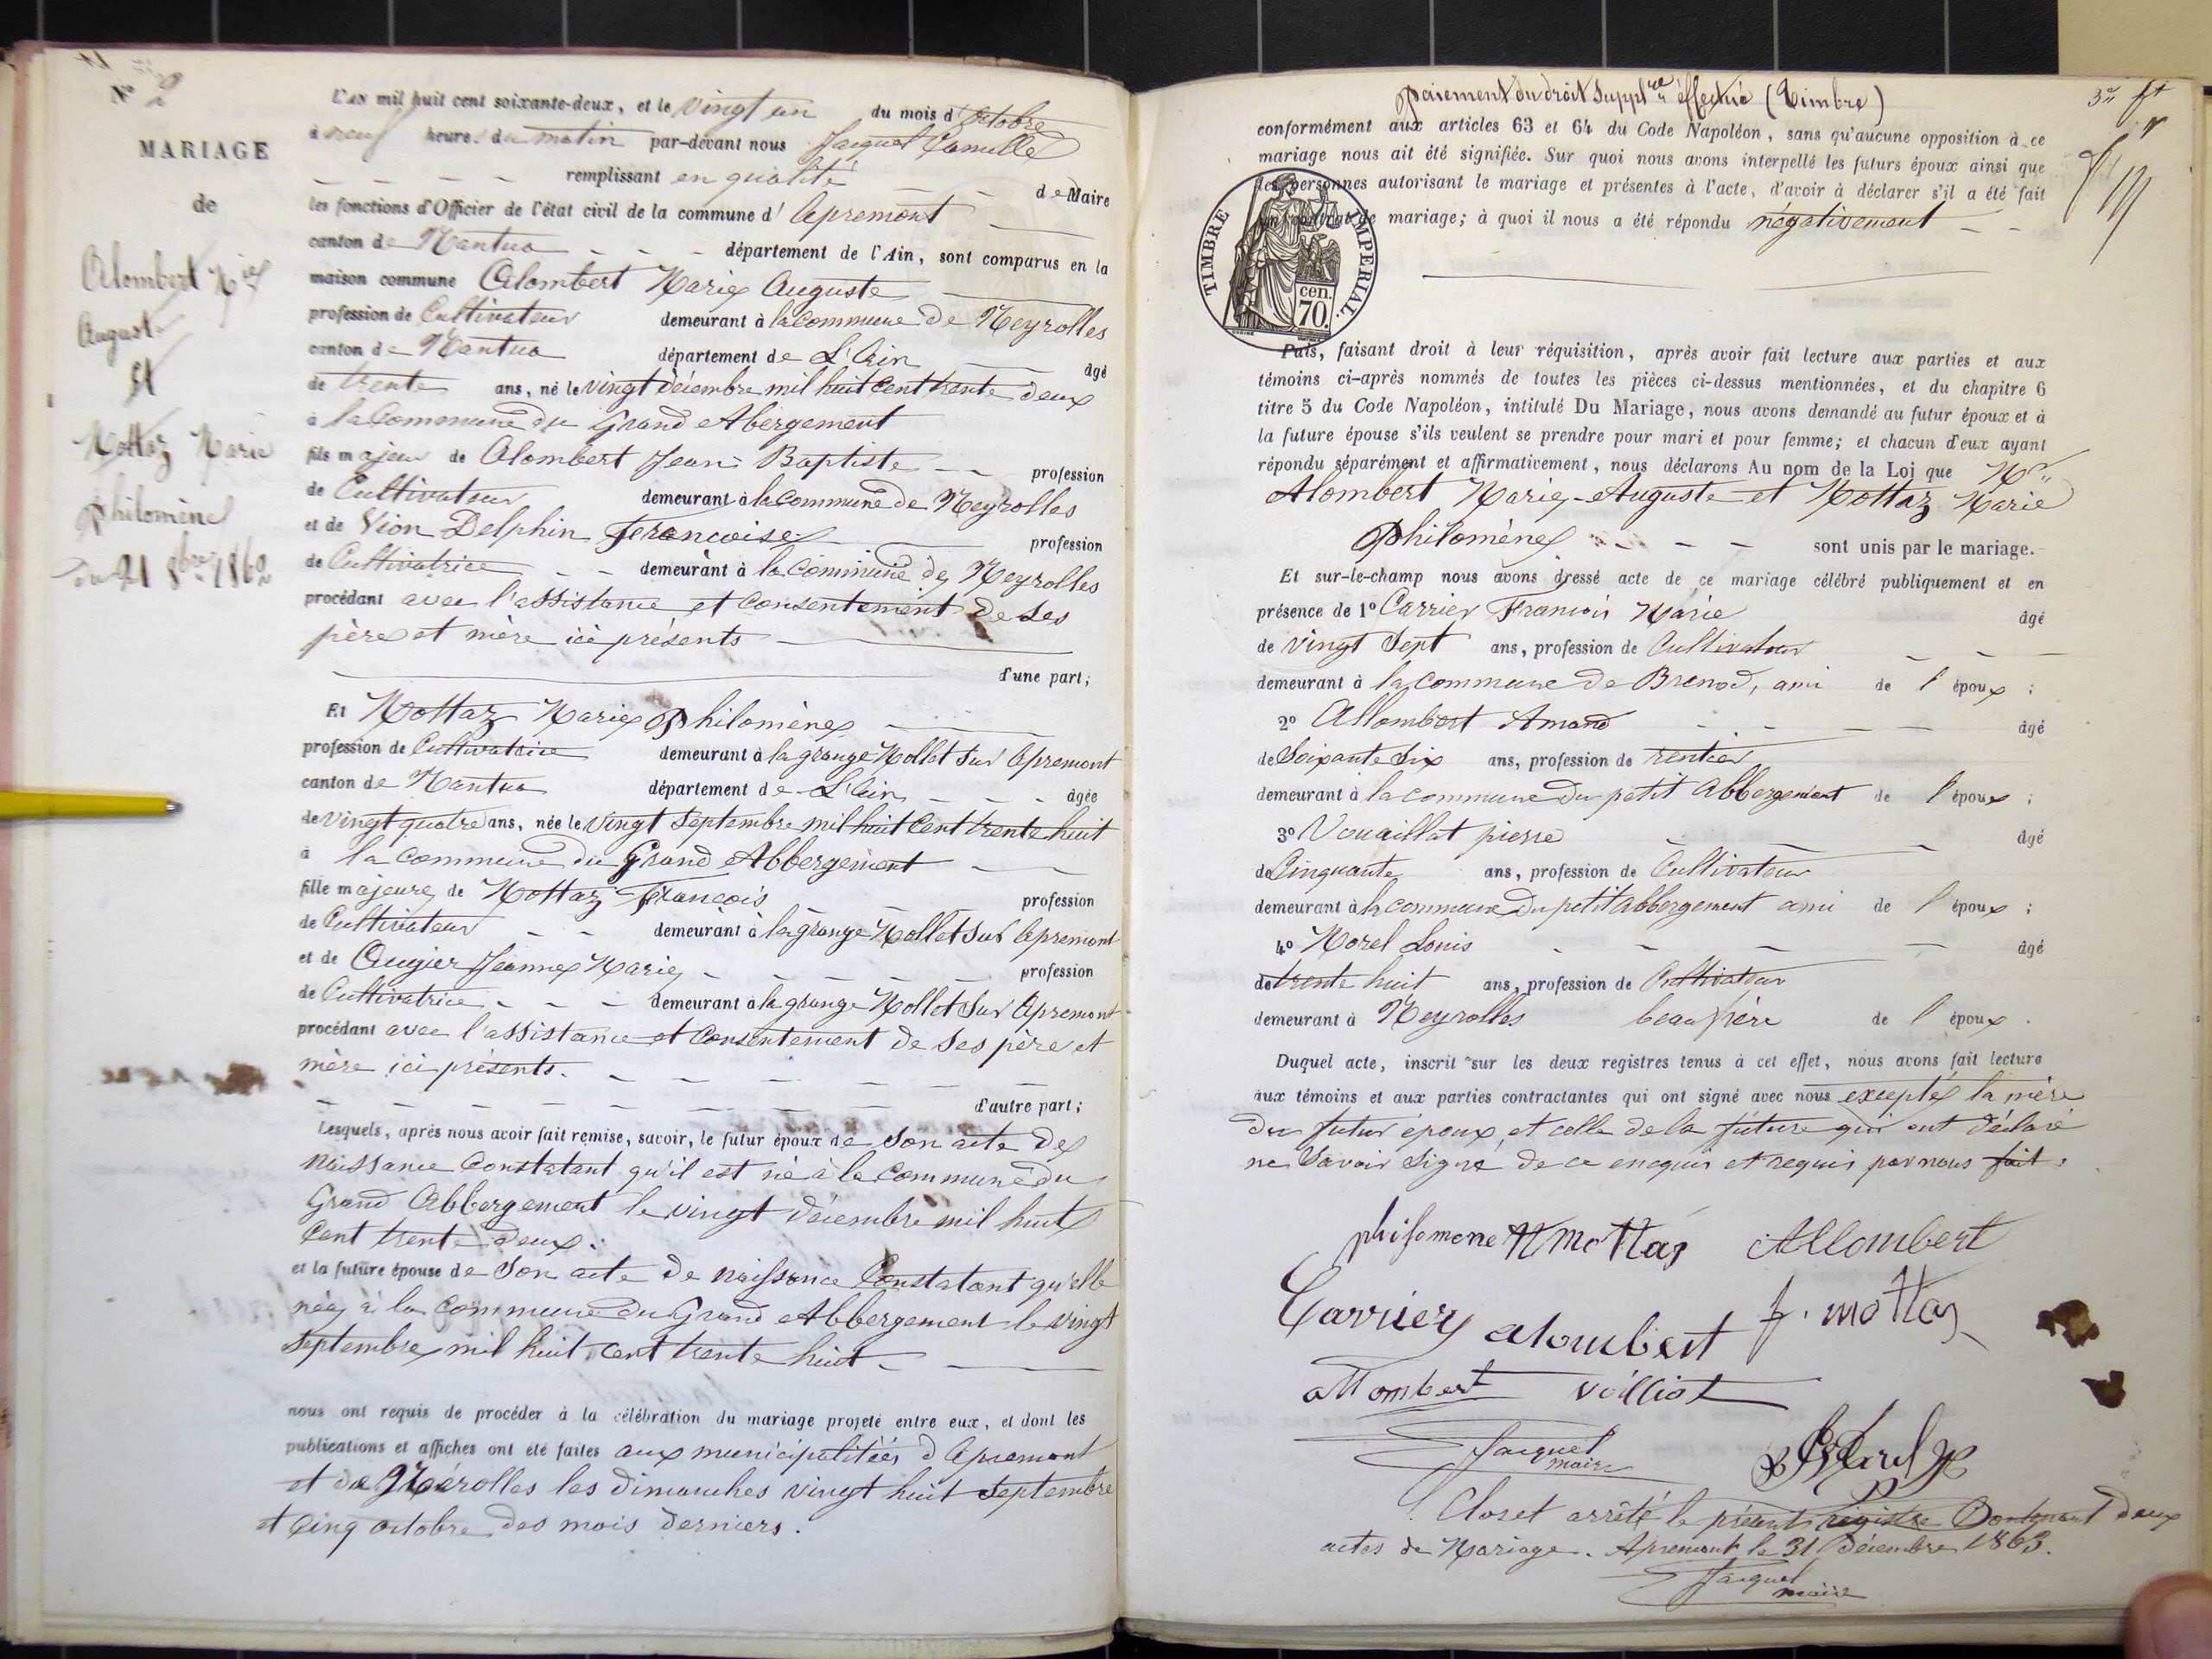 N° 2
MARIAGE
de
Alombert Mie
Auguste
et
Mottaz Marie
Philomène
du 21 8bre 1862
L'an mil huit cent soixante-deux, et le vingt un du mois d'octobre
à neuf heures du matin par-devant nous Jacquet Camille
remplissant en qualité de Maire
les fonctions d'Officier de l'état civil de la commune d'Apremont
canton de Nantua département de l'Ain, sont comparus en la
maison commune Alombert Marie Auguste
profession de Cultivateur demeurant à la commune de Neyrolles
canton de Nantua département de L'Ain âgé
de trente ans, né le vingt décembre mil huit cent trente deux
à la Commune du Grand Abergement
fils majeur de Alombert Jean Baptiste profession
de Cultivateur demeurant à la commune de Neyrolles
et de Vion Delphin Francoise profession
de Cultivatrice demeurant à la commune de Neyrolles
procédant avec l'assistance et consentement de ses
père et mère ici présents
d'une part;
Et Mottaz Marie Philomène
profession de Cultivatrice demeurant à la grange Mollet sur Apremont
canton de Nantua département de L'Ain âgée
de vingt quatre ans, née le vingt septembre mil huit cent trente huit
à la commune du Grand Abbergement
fille majeure de Mottaz François profession
de Cultivateur demeurant à la grange Mollet sur Apremont
et de Augier Jeanne Marie profession
de Cultivatrice demeurant à la grange Mollet sur Apremont
procédant avec l'assistance et consentement de ses père et
mère ici présents.
d'autre part;
Lesquels, après nous avoir fait remise, savoir, le futur époux de son acte de
naissance constatant qu'il est né à la commune du
Grand Abbergement le vingt décembre mil huit
cent trente deux.
et la future épouse de son acte de naissance constatant qu'elle
née à la commune du Grand Abbergement le vingt
septembre mil huit cent trente huit
nous ont requis de procéder à la célébration du mariage projeté entre eux, et dont les
publications et affiches ont été faites aux municipalitées d'Apremont
et de Nérolles les dimanches vingt huit septembre
et cinq octobre des mois derniers.
paiement du droit supplre effectué (Timbre)
conformément aux articles 63 et 64 du Code Napoléon, sans qu'aucune opposition à ce
mariage nous ait été signifiée. Sur quoi nous avons interpellé les futurs époux ainsi que
les personnes autorisant le mariage et présentes à l'acte, d'avoir à déclarer s'il a été fait
un contrat de mariage; à quoi il nous a été répondu négativement
TIMBRE IMPERIAL.
cen.
70.
Puis, faisant droit à leur réquisition, après avoir fait lecture aux parties et aux
témoins ci-après nommés de toutes les pièces ci-dessus mentionnées, et du chapitre 6
titre 5 du Code Napoléon, intitulé Du Mariage, nous avons demandé au futur époux et à
la future épouse s'ils veulent se prendre pour mari et pour femme; et chacun d'eux ayant
répondu séparément et affirmativement, nous déclarons Au nom de la Loi que Mr
Alombert Marie-Auguste et Mottaz Marie
Philomène sont unis par le mariage.
Et sur-le-champ nous avons dressé acte de ce mariage célébré publiquement et en
présence de 1° Carrier Francois Marie âgé
de vingt sept ans, profession de Cultivateur
demeurant à la commune de Brenod, ami de l'époux;
2° Allombert Amand âgé
de Soixante Six ans, profession de rentier
demeurant à la commune du petit Abbergement de l'époux;
3° Vouaillat pierre âgé
de Cinquante ans, profession de Cultivateur
demeurant à la commune du petit Abbergement ami de l'époux;
4° Morel Louis âgé
de trente huit ans, profession de Cultivateur
demeurant à Neyrolles beau frère de l'époux.
Duquel acte, inscrit sur les deux registres tenus à cet effet, nous avons fait lecture
aux témoins et aux parties contractantes qui ont signé avec nous exceptés la mère
du futur époux, et celle de la future qui ont déclaré
ne Savoir Signé de ce enequis et requis par nous fait.
philomene M mottaz Allombert
Carrier alombert f. mottaz
allombert Voilliot
Jacquet
maire
Clos et arrêté le présent registre Contenant deux
actes de Mariage. Apremont le 31 décembre 1863.
Jacquet
maire